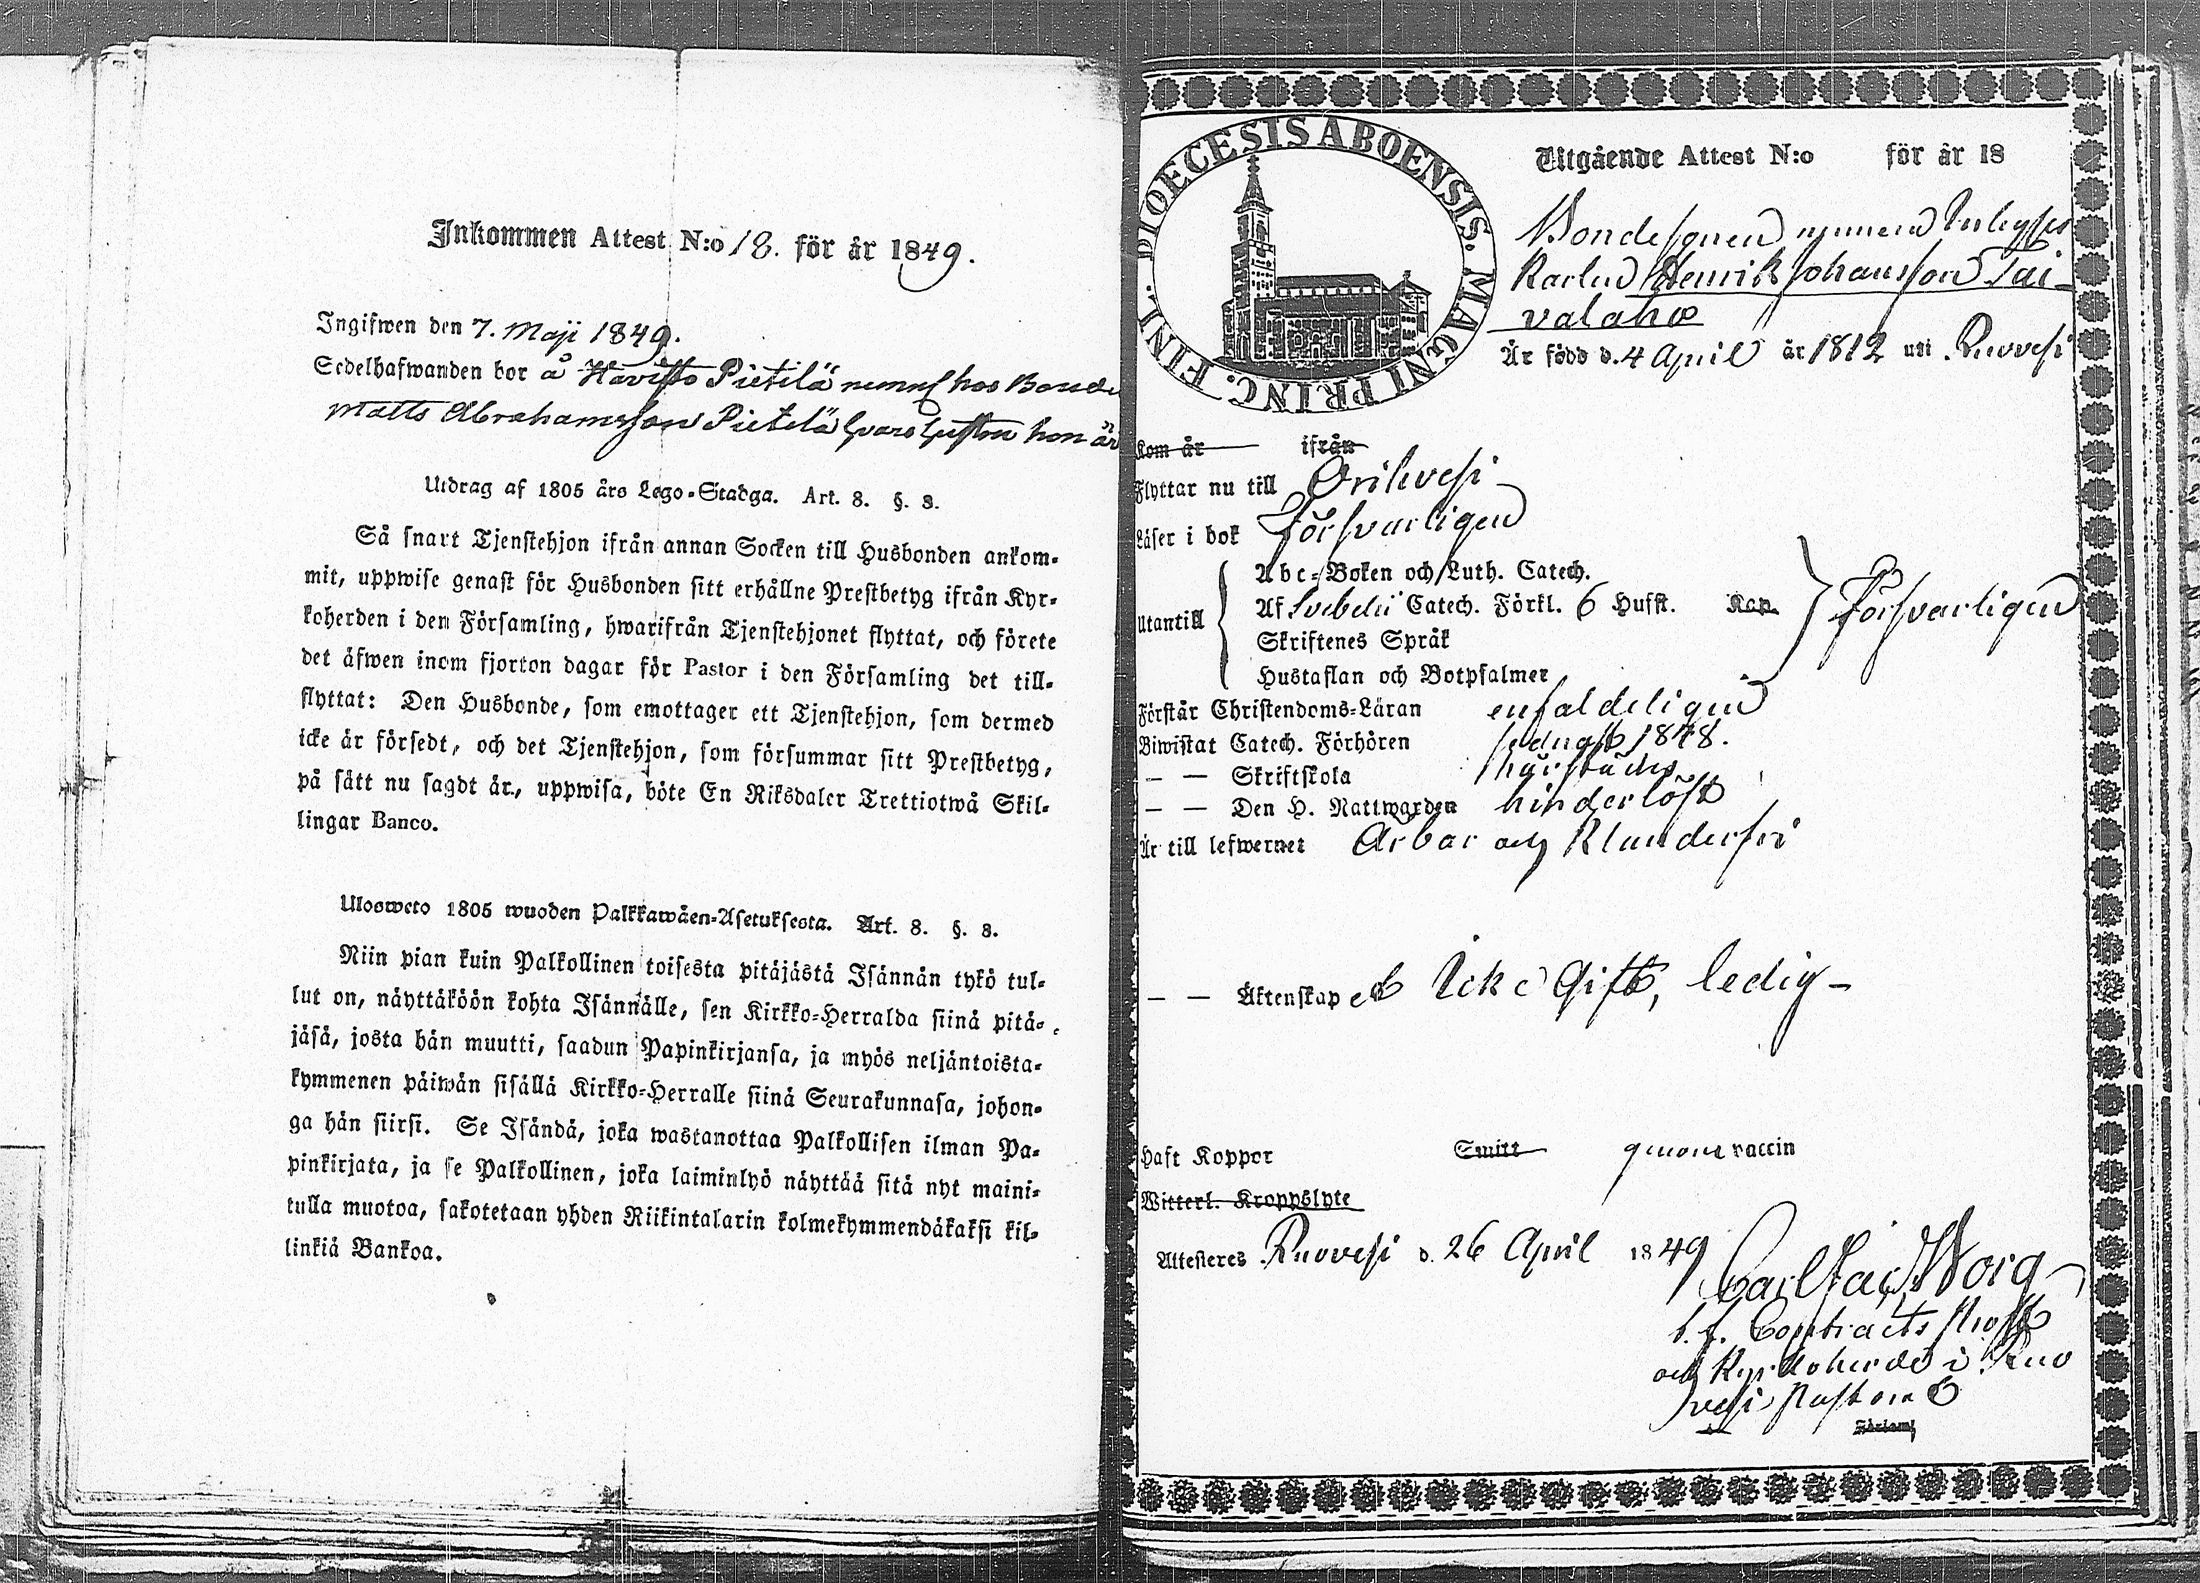 Inkommen Attest N:o 18. för år 1849.
Ingifwen den 7. Maji 1849.
Sedelhafwanden bor å Havisto Pietilä hos Bonde
Matts Abrahamsson Pietilä hon är
Utdrag af 1805 års Lego-Stadga. Art. 8. §. 8.
Så snart Tjenstehjon ifrån annan Socken till Husbonden ankom-
mit, uppwise genast för Husbonden sitt erhållne Prestbetyg ifrån Kyr-
koherden i den Församling, hwarifrån Tjenstehjonet flyttat, och förete
det äfwen inom fjorton dagar för Pastor i den Församling det till-
flyttat: Den Husbonde, som emottager ett Tjenstehjon, som dermed
icke är försedt, och det Tjenstehjon, som försummar sitt Prestbetyg,
på sätt nu sagdt är, uppwisa, böte En Riksdaler Trettiotwå Skil-
lingar Banco.
Ulosweto 1805 wuoden Palkkawäen-Asetuksesta. Art. 8. §. 8.
Niin pian kuin Palkollinen toisesta pitäjästä Isännän tykö tul-
lut on, näyttäköön kohta Isännälle, sen Kirkko-Herralda siinä pitä-
jäsä, josta hän muutti, saadun Papinkirjansa, ja myös neljäntoista-
kymmenen päiwän sisällä Kirkko-Herralle siinä Seurakunnasa, johon-
ga hän siirsi. Se Isändä, joka wastanottaa Palkollisen ilman Pa-
pinkirjata, ja se Palkollinen, joka laiminlyö näyttää sitä nyt maini-
tulla muotoa, sakotetaan yhden Riikintalarin kolmekymmendäkaksi kil-
linkiä Bankoa.
DIOECESIS ABOENSIS. MAGNI PRINC. FINL.
Utgående Attest N:o för år 18
Bondesonen numera Inhyses
Karlen Henrik Johansson Tai-
valaho
Är född d. 4 April år 1812 uti Ruovesi
Kom år ifrån
Flyttar nu till Orihvesi
Läser i bok Försvarligen
Utantill
Abc-Boken och Luth. Catech.
Af Svebelii Catech. Förkl. 6 Hufst. Kap. Försvarligen
Skriftenes Språk
Hustaflan och Botpsalmer
Förstår Christendoms-Läran enfaldeligen
Biwistat Catech. Förhören sednast 1848.
— — Skriftskola härstädes
— — Den H. Nattwarden hinderlöst
Är till lefwernet Ärbar och Klanderfri
— — Äktenskapet Icke Gift, ledig —
Haft Koppor Smitt genom vaccin
Witterl. Kroppslyte
Attesteres Ruovesi d. 26 April 1849
Carl
t. f. Contracts Prost
och Kyrkoherde i Ruo
vesi Pastorat
Församl